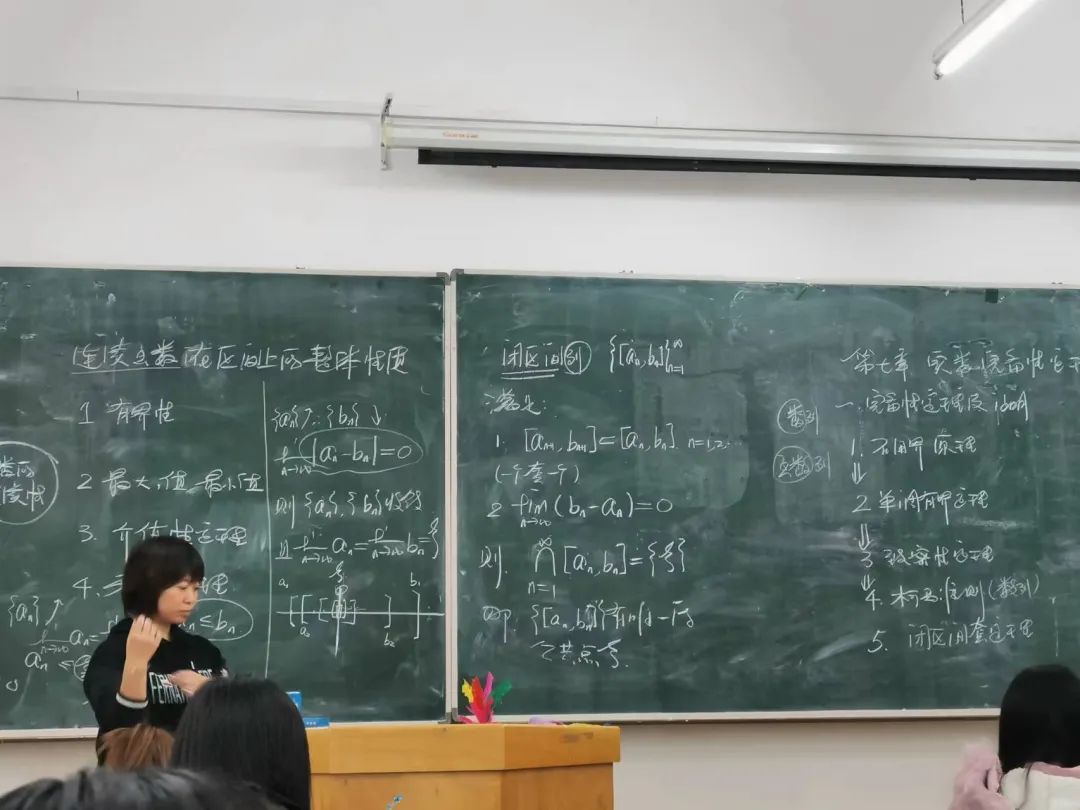 连续函数在区间上的整体性质
1 有界性
2 最大值、最小值
3. 介值性定理
4.
理
{aₙ}↗
≤bₙ
{aₙ}↗ {bₙ}↓
lim n→∞ |aₙ-bₙ|=0
则{aₙ},{bₙ}收敛
且 lim n→∞ aₙ = lim n→∞ bₙ=ξ
a₁
b₁
a₂
b₂
闭区间列 {[aₙ,bₙ]}ₙ₌₁^∞
满足:
1. [aₙ₊₁,bₙ₊₁]⊂[aₙ,bₙ] n=1,2,
(一个套一个)
2 lim n→∞ (bₙ-aₙ)=0
则. ∩ n=1 ∞ [aₙ,bₙ]={ξ}
即: {[aₙ,bₙ]}有
公共点ξ.
数列
实数列
第七章 实数完备性定理
一. 完备性定理及
1. 确界原理
⇓
2 单调有界定理
⇓
3 致密性定理
⇓
4. 柯西准则(数列)
5. 闭区间套定理